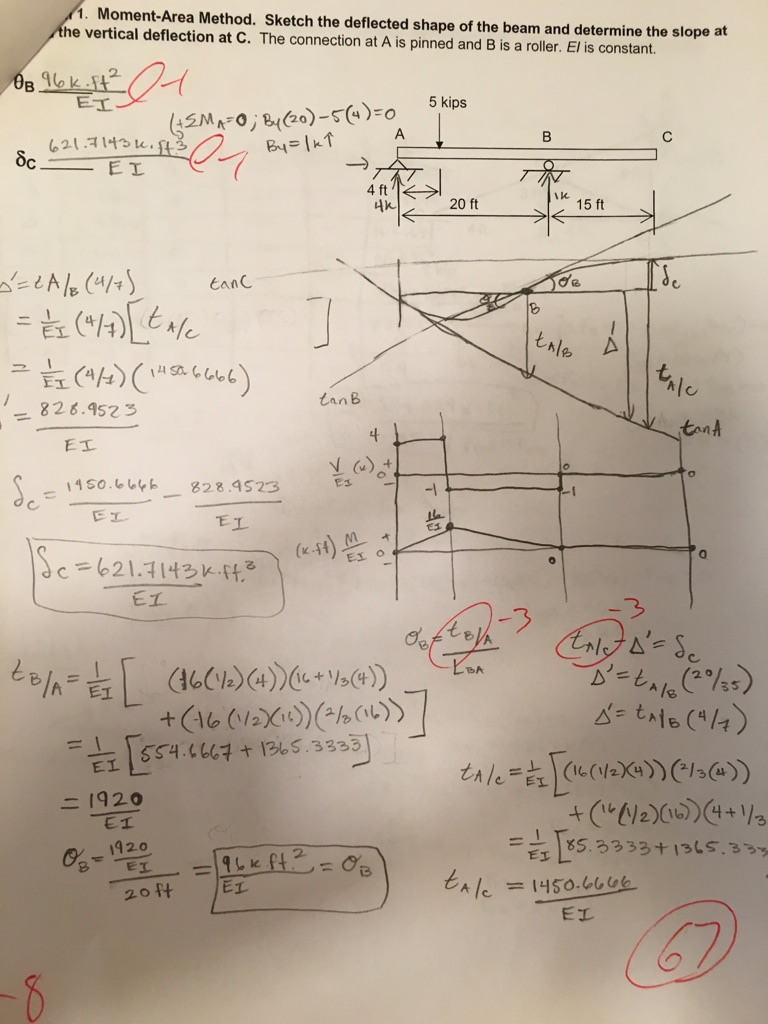 1. Moment-Area Method. Sketch the deflected shape of the beam and determine the slope at
the vertical deflection at C. The connection at A is pinned and B is a roller. EI is constant.
θB 96k·ft² / EI -1
(+ΣM_A=0; By(20)-5(4)=0
By=1k↑
δc 621.7143k·ft³ / EI -1
5 kips
A B C
4 ft
4k 1k
20 ft 15 ft
Δ'=tA/B(4/7) tanC
= 1/EI (4/7)[tA/c ]
= 1/EI (4/7)(1450.6666)
' = 828.9523 / EI
δc = 1450.6666 / EI - 828.9523 / EI
δc = 621.7143k·ft.³ / EI
θB δc
B
tA/B Δ' tA/c
tanB
tanA
4
V/EI (k) + 0 -
-1 0 -1 0
16/EI
(k·ft) M/EI + 0 -
0 0
θB = tB/A / LBA -3
tA/c - Δ' = δc -3
Δ' = tA/B(20/35)
Δ' = tA/B(4/7)
tB/A = 1/EI [ (16(1/2)(4))(16+1/3(4))
+(16(1/2)(16))(2/3(16)) ]
= 1/EI [554.6667 + 1365.3333]
= 1920 / EI
θB = 1920/EI / 20ft = 96k ft.² / EI = θB
tA/c = 1/EI [(16(1/2)(4))(2/3(4))
+(16(1/2)(16))(4+1/3
= 1/EI [85.3333+1365.333
tA/c = 1450.6666 / EI
67
-8